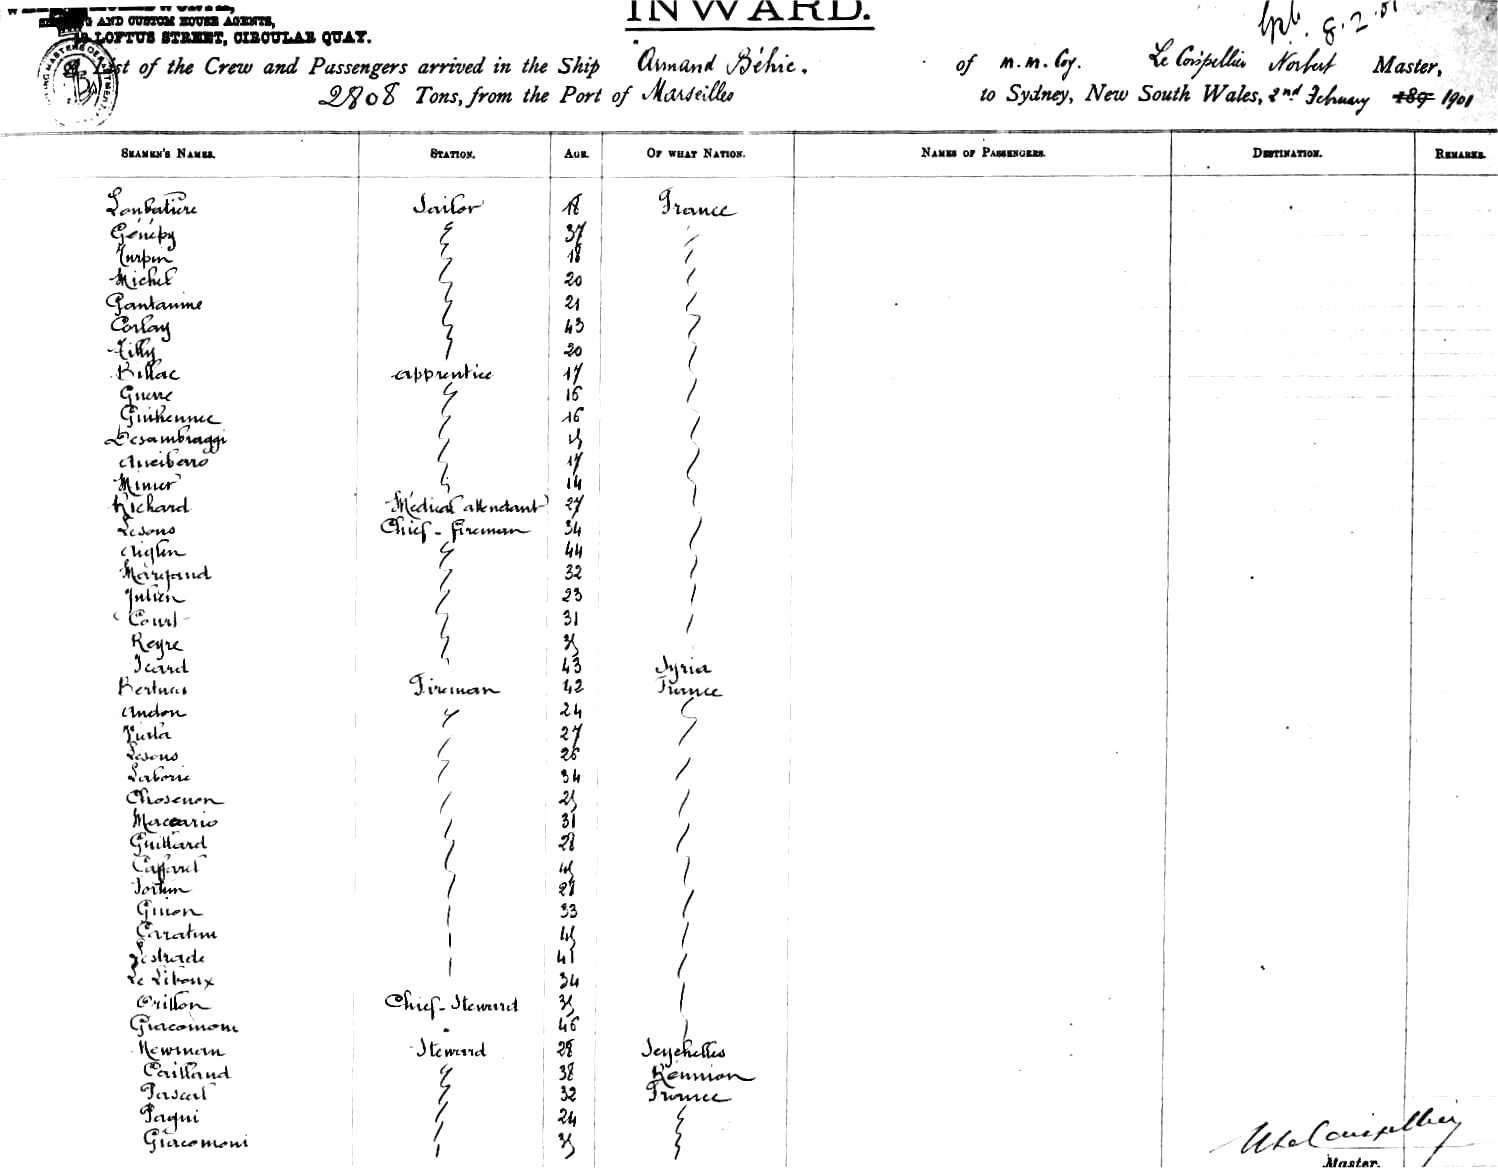 INWARD.
AND CUSTOM HOUSE AGENTS,
LOFTUS STREET, CIRCULAR QUAY.
8.2.01
List of the Crew and Passengers arrived in the Ship Armand Béhic. of M.M. Coy. Norbert Master,
2808 Tons, from the Port of Marseilles to Sydney, New South Wales, 2nd February 189 1901
SEAMEN'S NAMES. STATION. AGE. OF WHAT NATION. NAMES OF PASSENGERS. DESTINATION. REMARKS.
Loubatière Sailor 18 France
Génépy 37
Turpin 18
Michel 20
Gantaume 21
Corlay 43
Tilly 20
Billac apprentice 17
Guerre 16
Guihennec 16
Desambraggi 15
17
Minier 14
Richard Médical attendant 27
Lesons Chief-fireman 34
Aiglin 44
Margand 32
Julien 23
Court 31
Reyre 35
Icard 43 Syria
Bertucci Fireman 42 France
Andon 24
27
Lesons 26
Laborie 34
Chosenon 25
Maccario 31
Guillard 28
Caffarel 45
Tortun 28
Guion 33
Caratini 45
Lestrade 41
Le Liboux 34
Orillon Chief-Steward 35
Giacomoni 46
Newman Steward 28 Seychelles
Caillaud 38 Reunion
Pascal 32 France
Pagni 24
Giacomoni 35
Master.